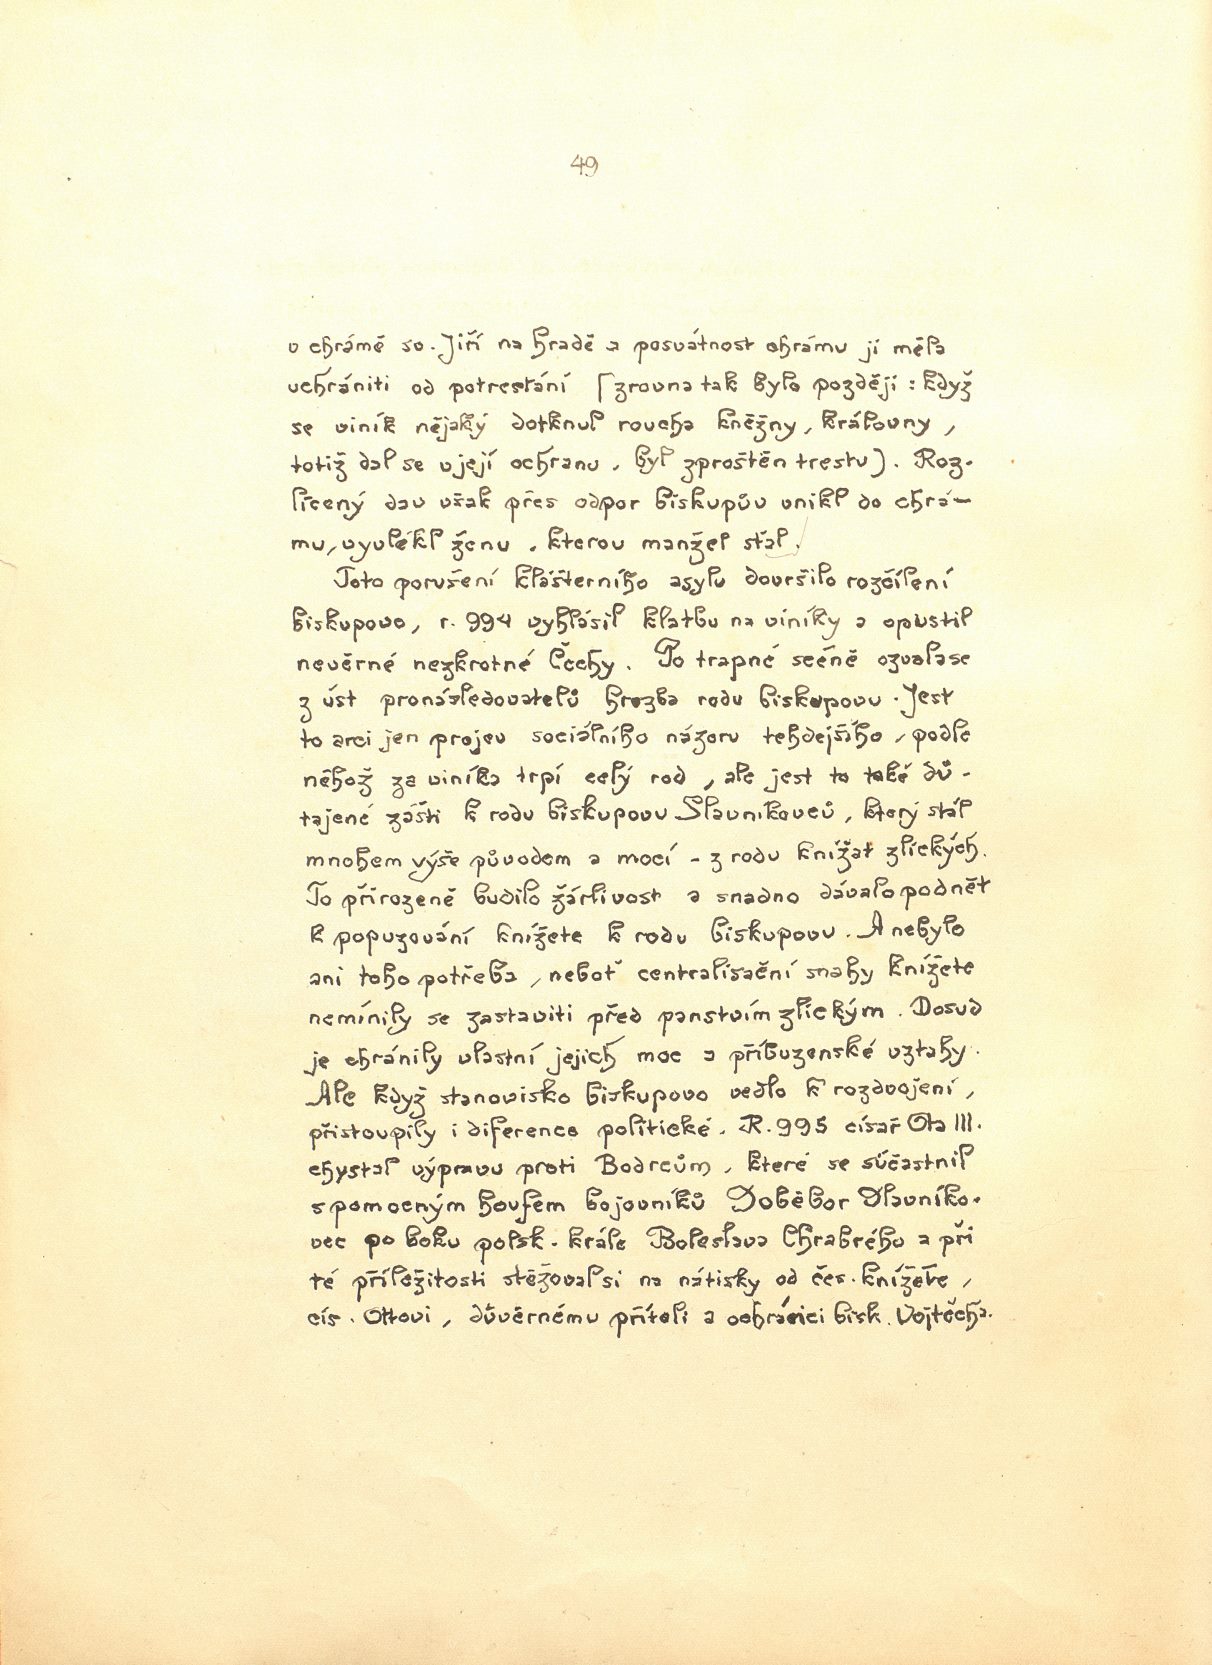 49
v chrámě sv. Jiří na hradě a posvátnost chrámu jí měla
uchrániti od potrestání (zrovna tak bylo později: když
se viník nějaký dotknul roucha kněžny, královny,
totiž dal se v její ochranu, byl zproštěn trestu). Roz-
lícený dav však přes odpor biskupův vnikl do chrá-
mu, vyvlékl ženu, kterou manžel sťal.
Toto porušení klášterního asylu dovršilo rozčílení
biskupovo, r. 994 vyhlásil klatbu na viníky a opustil
nevěrné nezkrotné Čechy. Po trapné scéně ozvala se
z úst pronásledovatelů hrozba rodu biskupovu. Jest
to arci jen projev sociálního názoru tehdejšího, podle
něhož za viníka trpí celý rod, ale jest to také dů-
tajené zášti k rodu biskupovu Slavníkovců, který stál
mnohem výše původem a mocí - z rodu knížat zlických.
To přirozeně budilo žárlivost a snadno dávalo podnět
k popuzování knížete k rodu biskupovu. A nebylo
ani toho potřeba, neboť centralisační snahy knížete
nemínily se zastaviti před panstvím zlickým. Dosud
je chránily vlastní jejich moc a příbuzenské vztahy.
Ale když stanovisko biskupovo vedlo k rozdvojení,
přistoupily i diference politické. R. 995 císař Ota III.
chystal výpravu proti Bodrcům, které se súčastnil
s pomocným houfem bojovníků Doběbor Slavníko-
vec po boku polsk. krále Boleslava Chrabrého a při
té příležitosti stěžoval si na nátisky od čes. knížete,
cís. Ottovi, důvěrnému příteli a ochránci bisk. Vojtěcha.